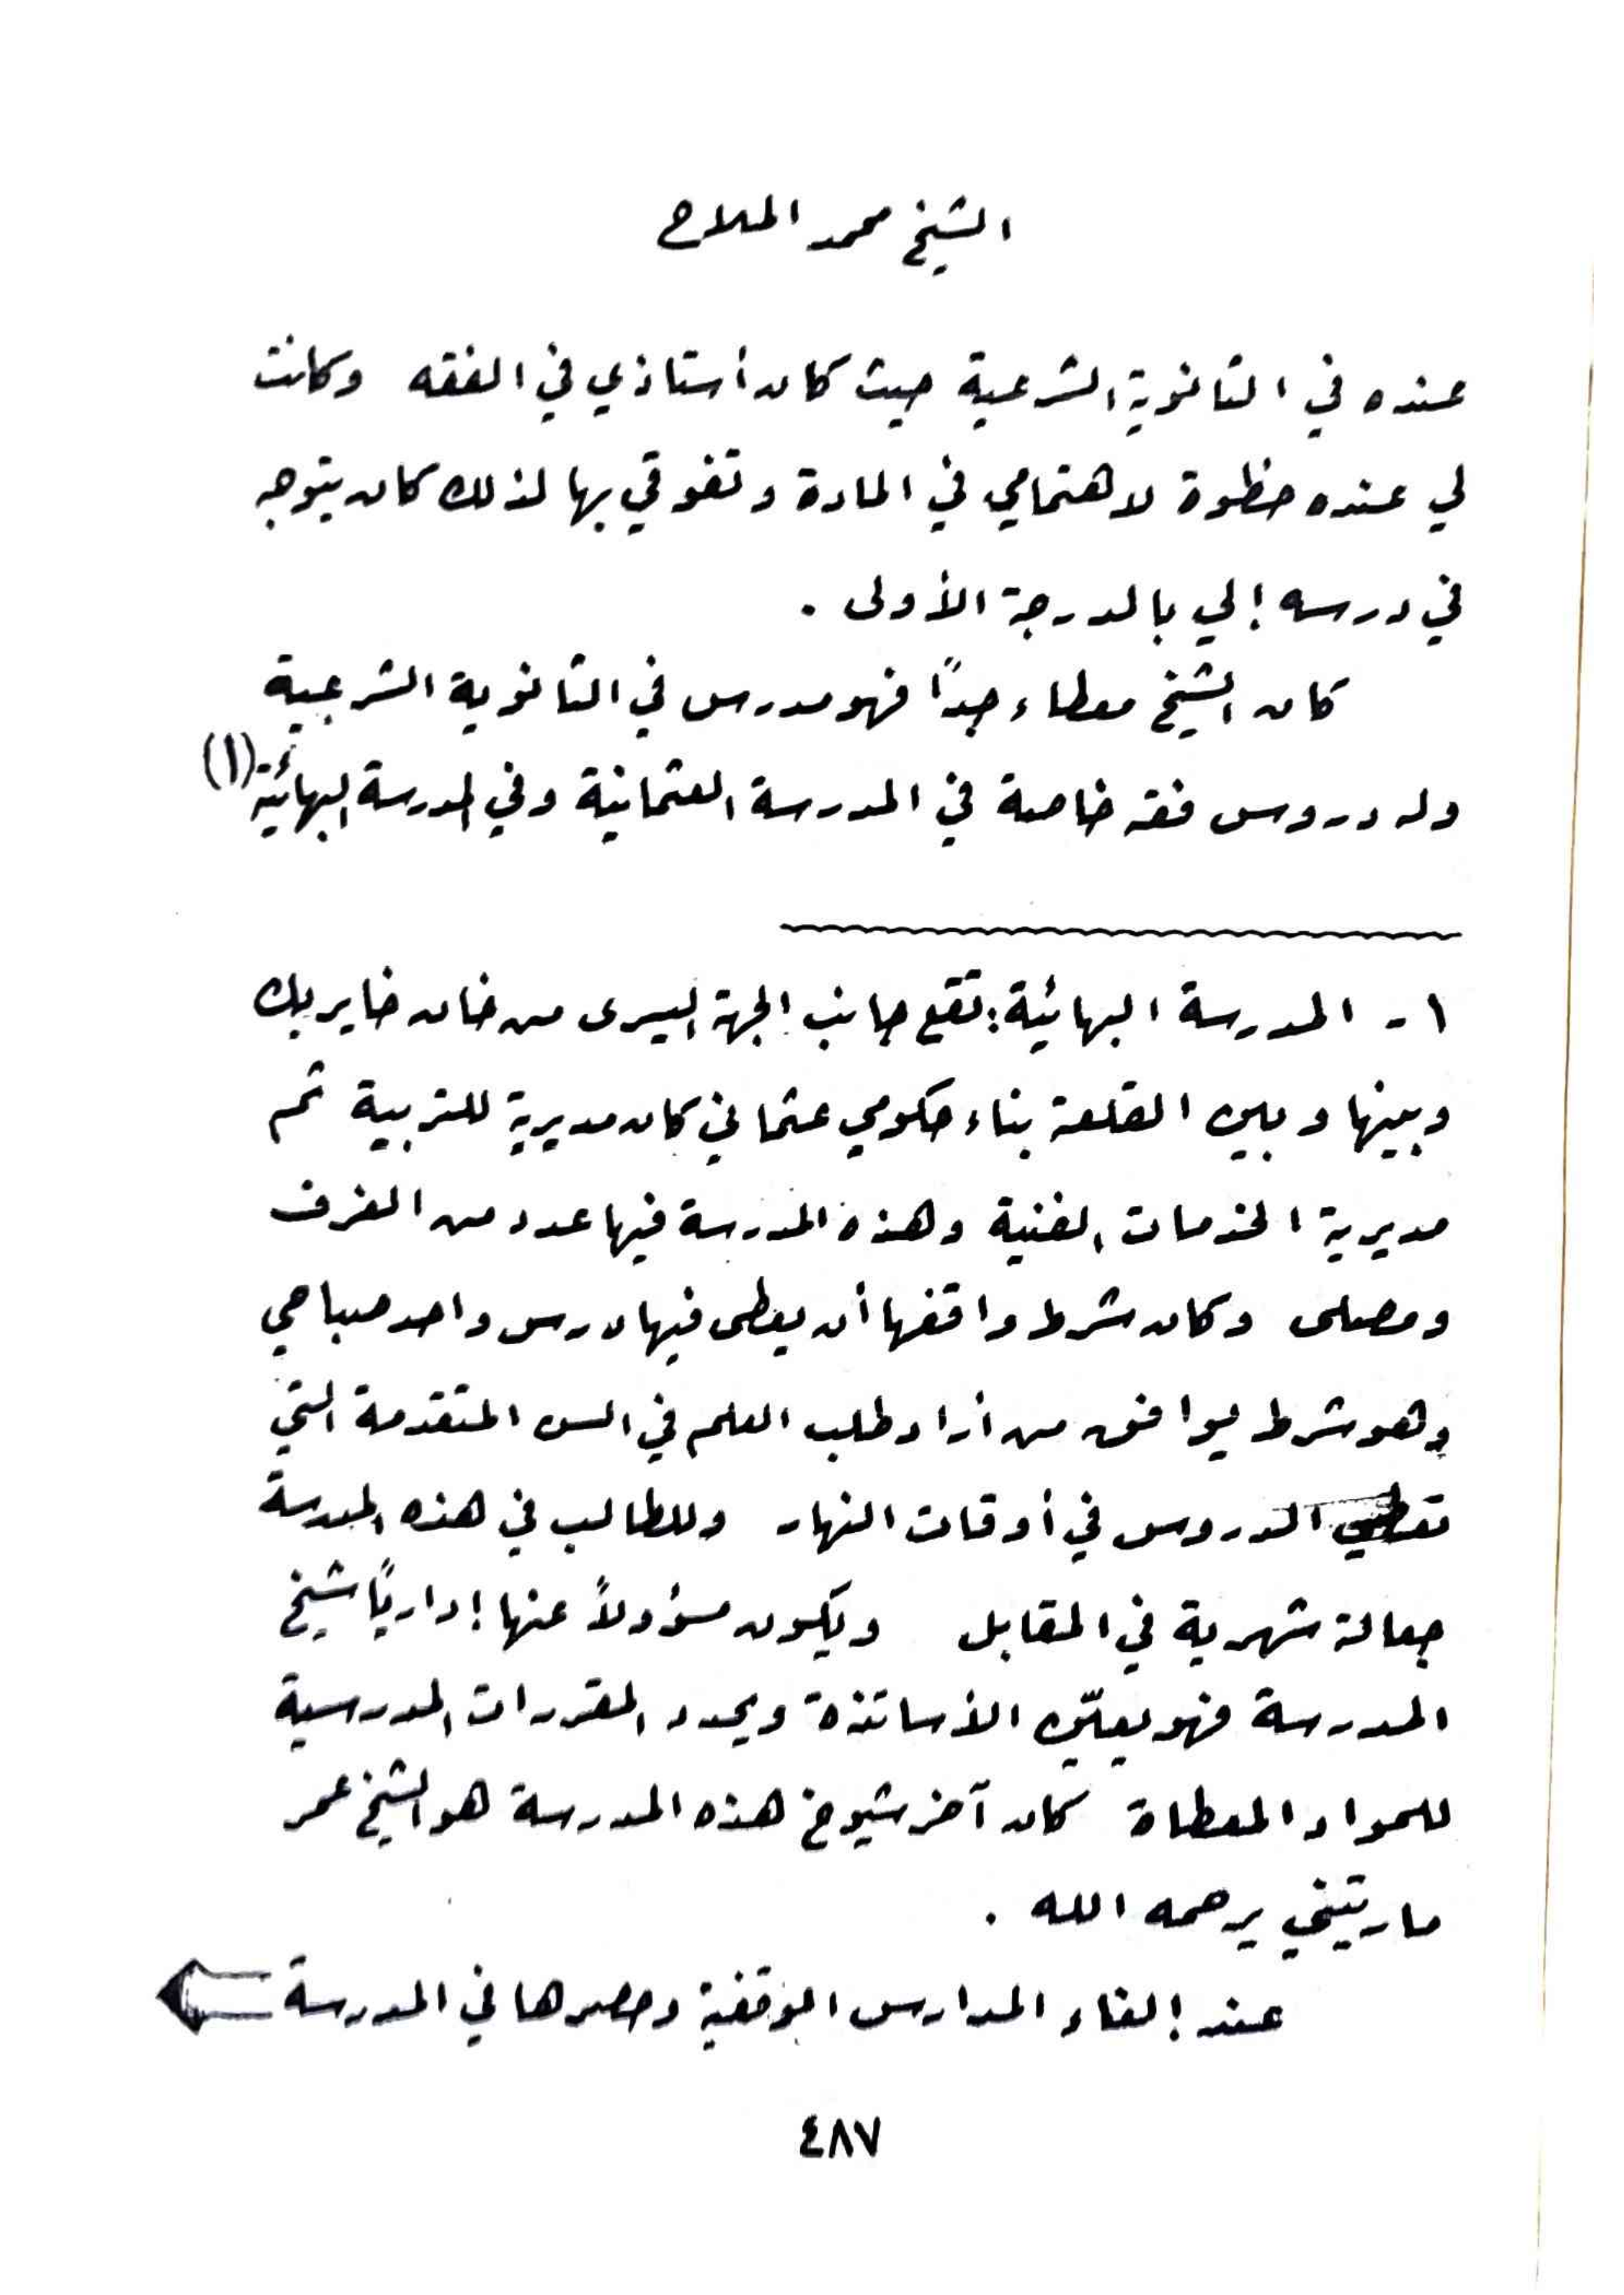 الشيخ محمد الملاح
عنده في الثانوية الشرعية حيث كان أستاذي في الفقه وكانت
لي عنده حظوة لاهتمامي في المادة وتفوقي بها لذلك كان يتوجه
في درسه إلي بالدرجة الأولى .
كان الشيخ معطاء جداً فهو مدرس في الثانوية الشرعية
وله دروس فقه خاصة في المدرسة العثمانية وفي المدرسة البهائية (١)
١- المدرسة البهائية : تقع جانب الجهة اليسرى من خان خاير بك
وبينها وبين القلعة بناء حكومي عثماني كان مديرية للتربية ثم
مديرية الخدمات الفنية وهذه المدرسة فيها عدد من الغرف
ومصلى وكان شرط واقفها أن يعطى فيها درس واحد صباحي
وهو شرط يوافق من أراد طلب العلم في السن المتقدمة التي
تعطي الدروس في أوقات النهار وللطالب في هذه المدرسة
جعالة شهرية في المقابل ويكون مسؤولاً عنها إدارياً شيخ
المدرسة فهو يعيّن الأساتذة ويحدد المقررات المدرسية
للمواد المعطاة كان آخر شيوخ هذه المدرسة هو الشيخ عمر
مارتيني يرحمه الله .
عند إلغاء المدارس الوقفية وحصرها في المدرسة
٤٨٧